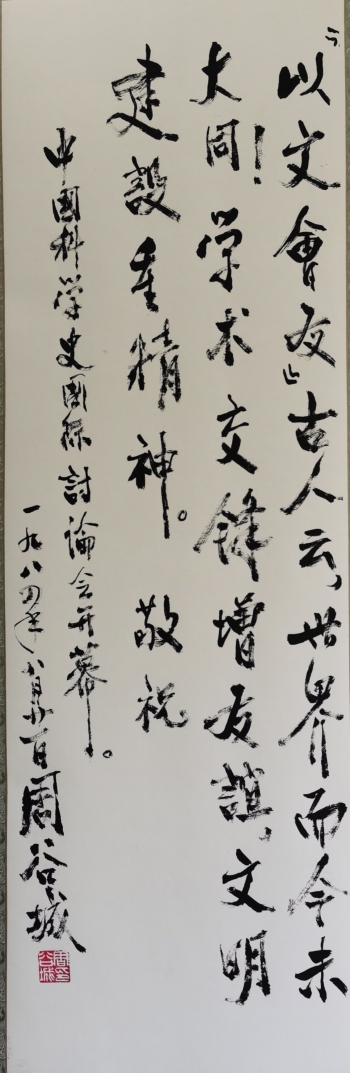 「以文會友」古人云，世界而今未
大同！学术交鋒增友誼，文明
建設重精神。 敬祝
中國科学史國際討論会开幕。
一九八四年八月廿日周谷城